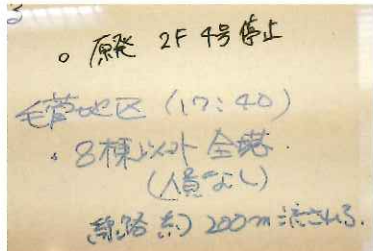 。原発 2F 4号停止
毛萱地区 (17:40)
・8棟以外 全壊.
(人員なし)
線路 約200m流される.